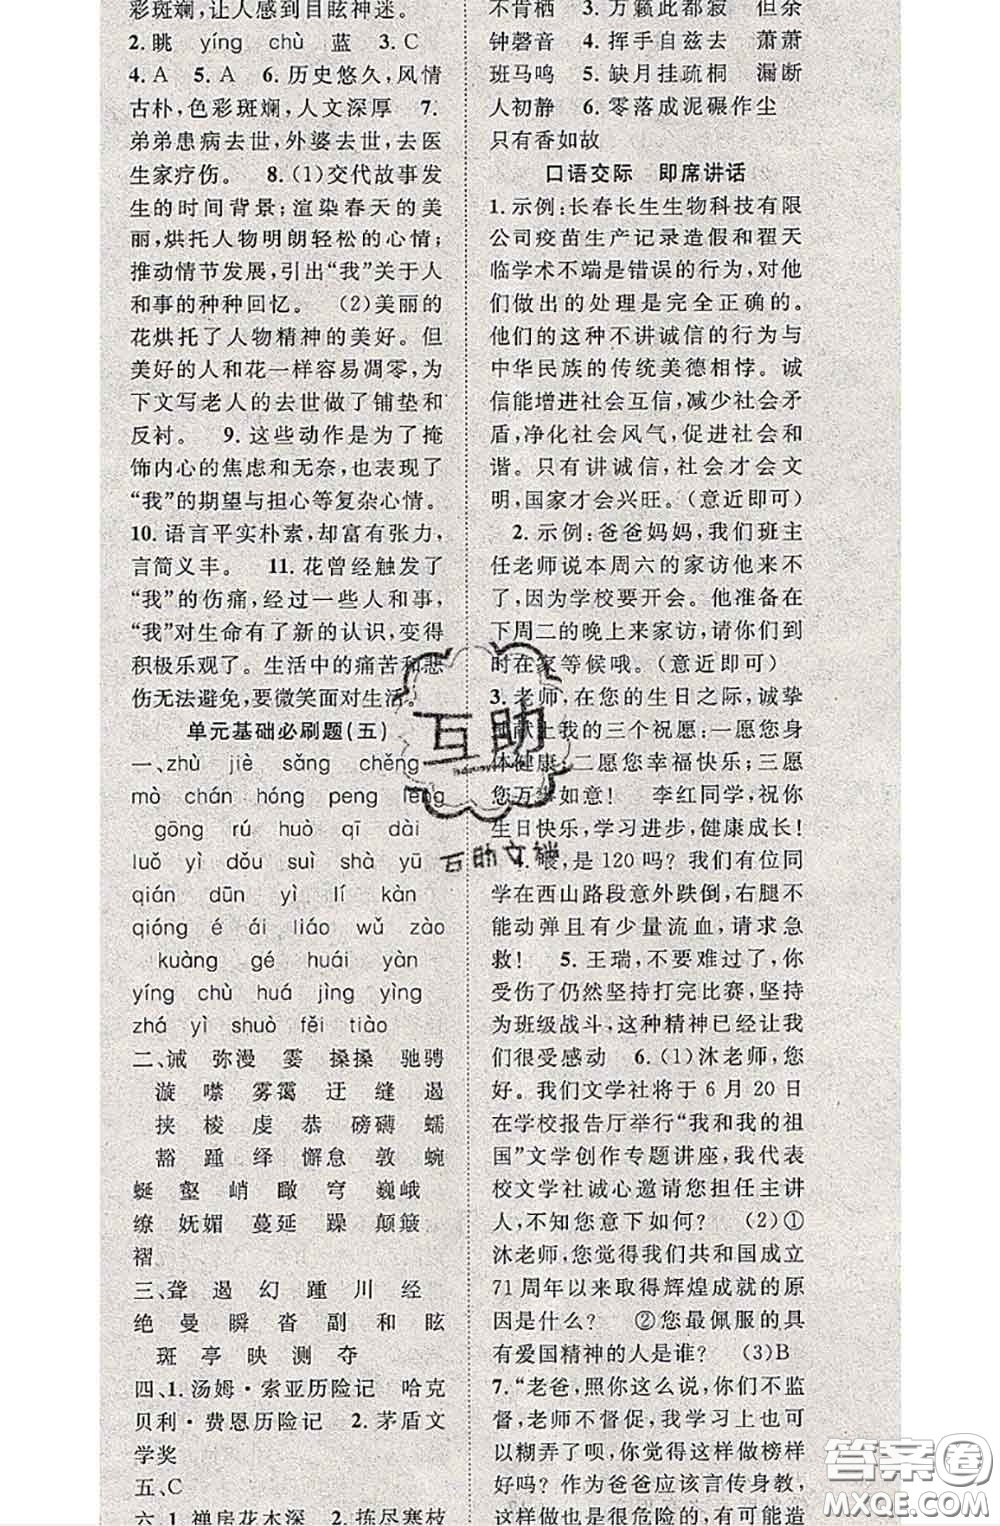 彩斑斓,让人感到目眩神迷。
2.眺 yíng chù 蓝 3.C
4.A 5.A 6.历史悠久,风情
古朴,色彩斑斓,人文深厚 7.
弟弟患病去世,外婆去世,去医
生家疗伤。 8.(1)交代故事发
生的时间背景;渲染春天的美
丽,烘托人物明朗轻松的心情;
推动情节发展,引出“我”关于人
和事的种种回忆。 (2)美丽的
花烘托了人物精神的美好。但
美好的人和花一样容易凋零,为
下文写老人的去世做了铺垫和
反衬。 9.这些动作是为了掩
饰内心的焦虑和无奈,也表现了
“我”的期望与担心等复杂心情。
10.语言平实朴素,却富有张力,
言简义丰。 11.花曾经触发了
“我”的伤痛,经过一些人和事,
“我”对生命有了新的认识,变得
积极乐观了。生活中的痛苦和悲
伤无法避免,要微笑面对生活。
单元基础必刷题(五)
一、zhù jiè sǎng chěng
mò chán hóng peng lèng
gōng rú huò qī dài
luǒ yì dǒu suì shà yū
qián dūn yì lí kàn
qióng é ái liáo wǔ zào
kuàng gé huái yàn
yíng chù huá jìng yìng
zhá yì shuò fěi tiào
二、诫 弥漫 霎 搡搡 驰骋
漩 噤 雾霭 迂 缝 遏
挟 棱 虔 恭 磅礴 蠕
豁 踵 绎 懈怠 敦 蜿
蜒 壑 峭 瞰 穹 巍峨
缭 妩媚 蔓延 躁 颠簸
褶
三、聋 遏 幻 踵 川 经
绝 曼 瞬 沓 副 和 眩
斑 亭 映 测 夺
四、1.汤姆·索亚历险记 哈克
贝利·费恩历险记 2.茅盾文
学奖
五、C
六、1.禅房花木深 2.拣尽寒枝
不肯栖 3.万籁此都寂 但余
钟磬音 4.挥手自兹去 萧萧
班马鸣 5.缺月挂疏桐 漏断
人初静 6.零落成泥碾作尘
只有香如故
口语交际 即席讲话
1.示例:长春长生生物科技有限
公司疫苗生产记录造假和翟天
临学术不端是错误的行为,对他
们做出的处理是完全正确的。
他们的这种不讲诚信的行为与
中华民族的传统美德相悖。诚
信能增进社会互信,减少社会矛
盾,净化社会风气,促进社会和
谐。只有讲诚信,社会才会文
明,国家才会兴旺。(意近即可)
2.示例:爸爸妈妈,我们班主
任老师说本周六的家访他来不
了,因为学校要开会。他准备在
下周二的晚上来家访,请你们到
时在家等候哦。(意近即可)
3.老师,在您的生日之际,诚挚
献上我的三个祝愿:一愿您身
体健康;二愿您幸福快乐;三愿
您万事如意! 李红同学,祝你
生日快乐,学习进步,健康成长!
4.喂,是120吗?我们有位同
学在西山路段意外跌倒,右腿不
能动弹且有少量流血,请求急
救! 5.王瑞,不要难过了,你
受伤了仍然坚持打完比赛,坚持
为班级战斗,这种精神已经让我
们很受感动 6.(1)沐老师,您
好。我们文学社将于6月20日
在学校报告厅举行“我和我的祖
国”文学创作专题讲座,我代表
校文学社诚心邀请您担任主讲
人,不知您意下如何? (2)①
沐老师,您觉得我们共和国成立
71周年以来取得辉煌成就的原
因是什么? ②您最佩服的具
有爱国精神的人是谁? (3)B
7.“老爸,照你这么说,你们不监
督,老师不督促,我学习上也可
以糊弄了呗,你觉得这样做榜样
好吗?作为爸爸应该言传身教,
这样做也是很危险的,有可能造
互助
互助文档
答案圈
MXQE.COM